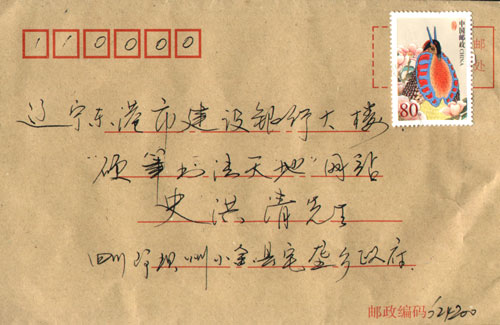 110000
中国邮政 CHINA
80
邮
处
辽宁东港市建设银行大楼
“硬笔书法天地”网站
史洪清先生
四川阿坝州小金县宅垄乡政府
邮政编码 624200